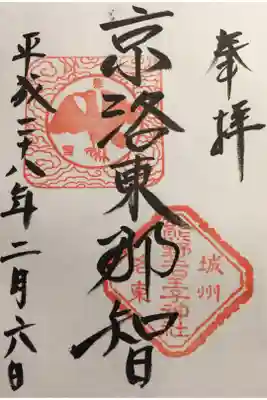 奉拝
京洛東那智
平成二十八年二月六日
城州
熊野若王子神社
洛東